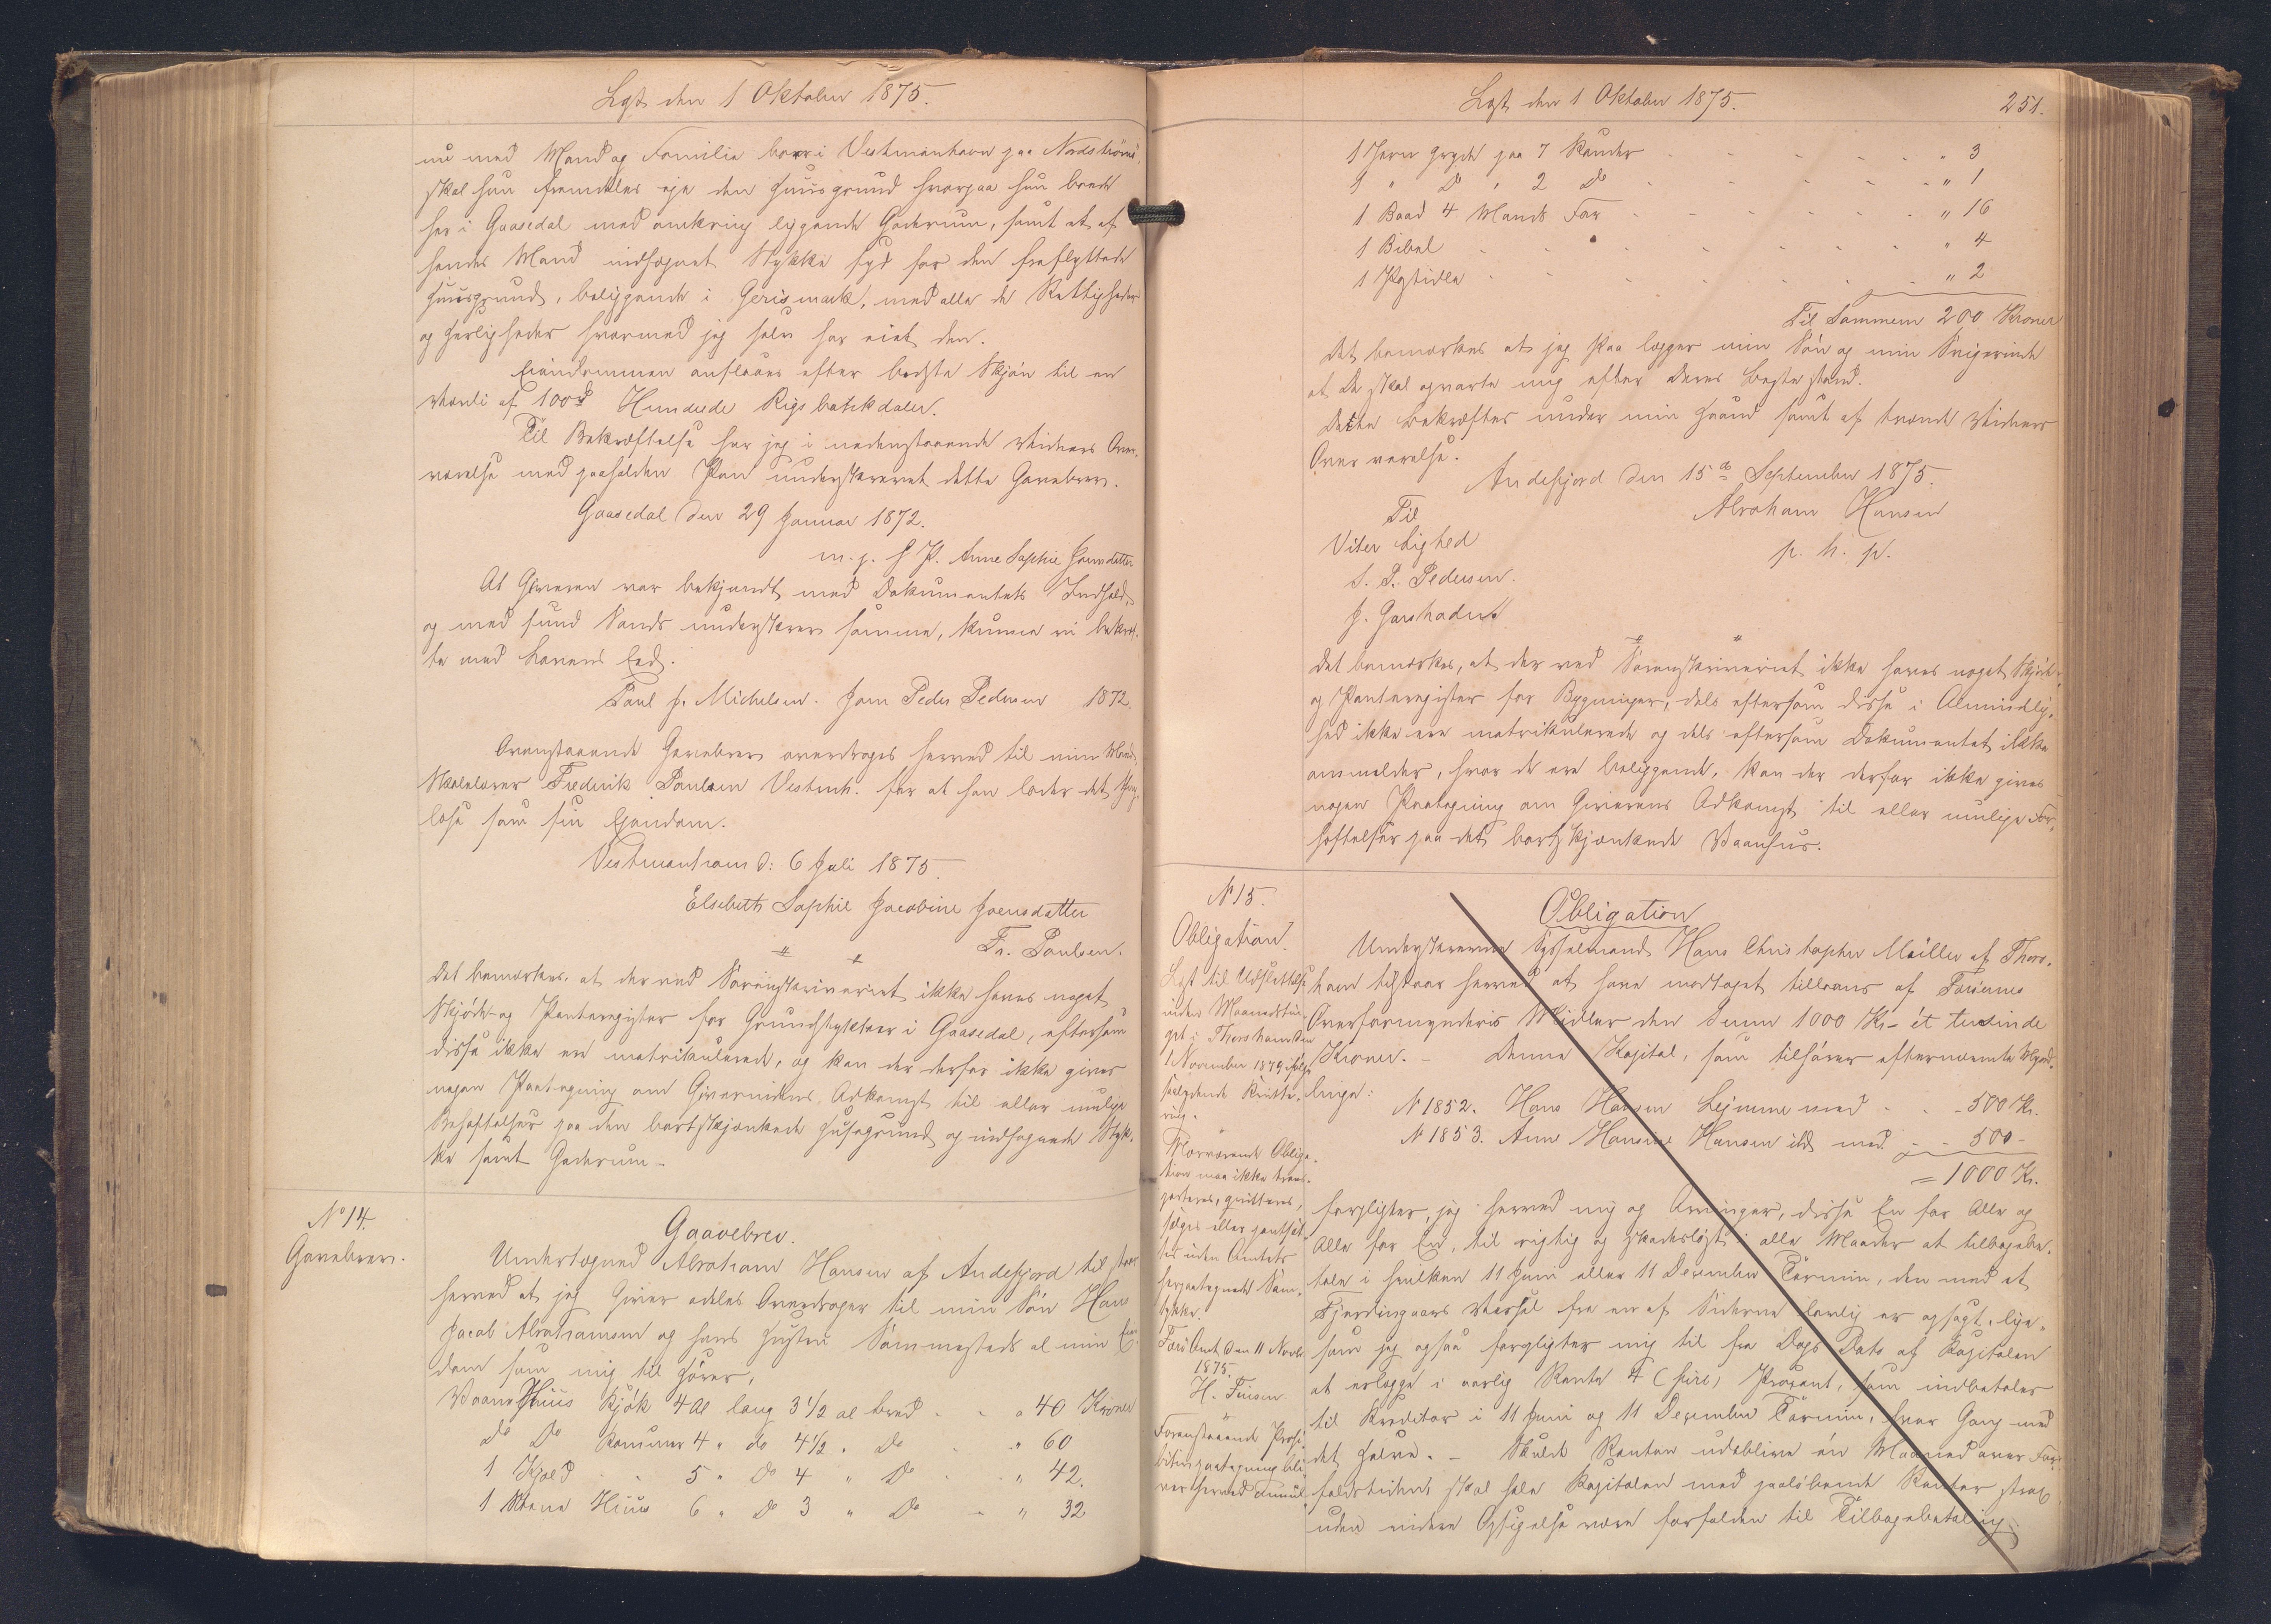 Lgst den 1 Oktober 1875.
nu med Mand og Familie boer i Vestmanhavn paa Nordströmö,
skal hun fremdeles eje den Huusgrund hvorpaa hun boede
her i Gaasedal med omkring liggende Gaderum, samt et af
hendes Mand indhegnet Stykke syd for den fraflyttede
Huusgrund, beliggende i Gerismark, med alle de Rettigheder
og Herligheder hvormed jeg selv har eiet den.
Eiendommen ansslaaes efter bedste Skjön til en
Værdi af 100 Hundrede Rigsbankdaler.
Til Bekræftelse har jeg i nedenstaaende Vidners Over-
værelse med paaholden Pen underskrevet dette Gavebrev.
Gaasedal den 29 Januar 1872.
m. p. P. Anne Sophie Joensdatter
At Giveren var bekjendt med Dokumentets Indhold,
og med sund Sands underskrev samme, kunne vi bekræf-
te med Lovens Eed.
Paul J. Michelsen. Joen Peder Pedersen 1872.
Ovenstaaende Gavebrev overdrages herved til min Mand,
Skolelærer Frederik Poulsen Vestmh. for at han lader det thing-
læse som sin Ejendom.
Vestmanhavn d: 6 Juli 1875.
Elsebeth Sophie Jacobine Joensdatter
Fr. Poulsen.
Det bemærkes, at der ved Sorenskriveriet ikke haves noget
Skjöde- og Panteregister for Grundstykker i Gaasedal, eftersom
disse ikke ere matrikulerede, og kan der derfor ikke gives
nogen Paategning om Giverindens Adkomst til eller mulige
Behæftelser paa den bortskjænkede Husegrund og indhegnede Styk-
ke samt Gaderum.
No 14.
Gavebrev.
Gaavebrev.
Undertegned Abraham Hansen af Andefjord til staar
herved at jeg Giver adeles Overdrager til min Sön Hans
Jacob Abrahamsen og hans Hustru Sammesteds al min Ein-
dom som mig til hörer,
Vaane Huus Kjök 4 Al lang 3 1/2 al bred " 40 Kroner
do Do Kammer 4 " do 4 1/2 " Do " 60
1 Hjald 5 " Do 4 " Do " 42.
1 Roena Huus 6 " D 3 " Do " 32
Lgst den 1 Oktober 1875.
251.
1 Jern Gryde paa 7 Kander " 3
1 " Do " 2 Do " 1
1 Baad 4 Mands Far " 16
1 Bibel " 4
1 Pgstidle " 2
Til Sammen 200 Kroner
Det bemærkes at jeg Paa legger min Sön og min Svigerinde
at De skal opvarte mig efter deres beste stand.
Dette bekræftes under min Haand samt af tvende Vidners
Over værelse.
Andefjord den 15de September 1875.
Til
Abraham Hansen
Viter lighed
p. h. p.
S. P. Pedersen.
J. Garshodn.
Det bemærkes, at der ved Sorenskriveriet ikke haves noget Skjöde-
og Panteregister for Bygninger, dels eftersom disse i Almindelig-
hed ikke ere matrikulerede og dels eftersom Dokumentet ikke
anmelder, hvor de ere beliggende, kan der derfor ikke gives
nogen Paategning om Giverens Adkomst til eller mulige Be-
hæftelser paa det bortskjænkede Vaanhus.
N 15.
Obligation.
Lgst til Udslettelse
inden Maanedsthin-
get i Thorshavn den
1 November 1879 ifølge
saalydende Kvitte-
ring.
Nærværende Obliga-
tion maa ikke trans-
porteres, qvitteres,
sælges eller pantsæt-
tes uden Amtets
herpaategnede Sam-
tykke.
Færö Amt den 11 Novbr
1875.
H. Finsen.
Foranstaaende Prohi-
bitivpaategning bli-
ver herved annul-
Obligation
Underskrevne Sysselmand Hans Christopher Möller af Thors-
havn tilstaar herved at have modtaget tillaans af Færöernes
Overformynderis Midler den Sum 1000 Kr - ét tusinde
Kroner. - Denne Kapital, som tilhörer efternævnte Mynd-
linge:
N 1852. Hans Hansen Lejnum med - 500 Kr.
N 1853. Anne Hansine Hansen ibd med - 500 -
= 1000 Kr.
forpligter jeg herved mig og Arvinger, disse En for Alle og
Alle for En, til rigtig og skadeslöst i alle Maader at tilbagebe-
tale i hvilken 11 Juni eller 11 December Termin, den med et
Fjerdingaars Varsel fra en af Siderne lovlig er opsagt, lige-
som jeg ogsaa forpligter mig til fra Dags Dato af Kapitalen
at erlægge i aarlig Rente 4 (fire) Procent, som indbetales
til Kreditor i 11 Juni og 11 December Termin, hver Gang med
det Halve. - Skulde Renten udeblive én Maaned over For-
faldstiden, skal hele Kapitalen med paalöbende Renter strax
uden videre Opsigelse være forfalden til Tilbagebetaling